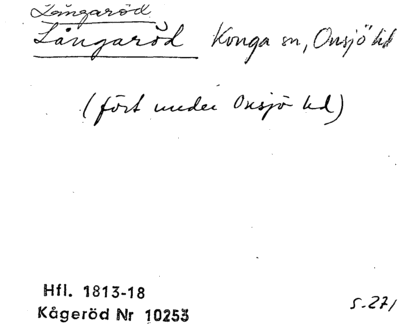 Långaröd
Långaröd Konga sn, Onsjö hd
(fört under Onsjö hd)
Hfl. 1813-18
Kågeröd Nr 10253
s. 271